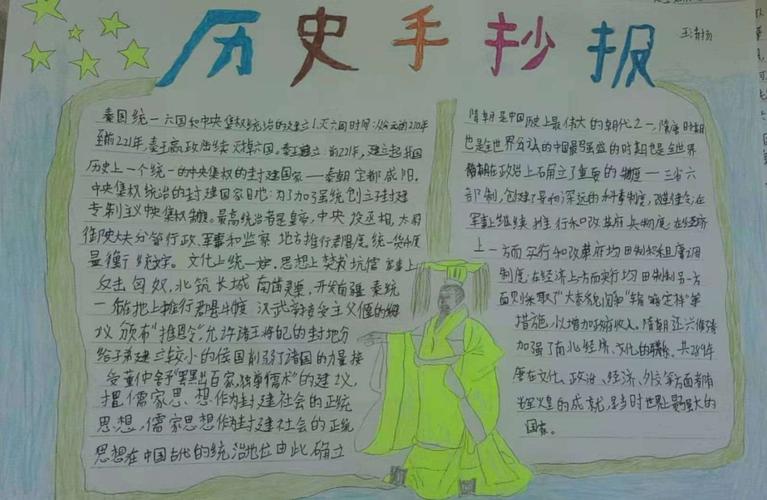 历史手抄报
秦国统一六国和中央集权统治的建立1.灭六国时间:公元前230年
至前221年,秦王嬴政陆续灭掉六国。秦王建立:前221年,建立起我国
历史上一个统一的中央集权的封建国家——秦朝定都咸阳。
中央集权统治的封建国家目地:为了加强统创立了封建
专制主义中央集权制度。最高统治者是皇帝,中央设丞相、太尉
御史大夫分管行政、军事和监察 地方推行郡县度,统一货币度
量衡 文字。文化上统一 思想上焚书坑儒
反击匈奴,北筑长城 开发 疆 秦统
一 地上推行郡县制度 汉武帝接受主父偃的建
议 颁布"推恩令"允许诸王将自己的封地分
给子弟建立较小的侯国 削弱了诸国的力量接
受董仲舒"罢黜百家,独尊儒术"的建议,
把儒家思想作为封建社会的正统
思想,儒家思想作为封建社会的正统
思想在中国古代的统治地位由此确立
隋朝是中国历史上最伟大的朝代之一,隋唐时期
也是全世界公认的中国最强盛的时期也是全世界
隋朝在政治上确立了重要的制度——三省六
部制,创建了影响深远的科举制度,
军事上继续推行和改革府兵制度,在经济
上一方面实行和改革府均田制和租庸调
制度,在经济上方面实行均田制 另一方
面则采取了"大索貌阅"和"输籍定样"等
措施,以增加政府收入。隋朝 修
加强了南北经济、文化的
唐在文化、政治、经济、外交等方面都有
辉煌的成就,是当时世界上最强大的
国家。